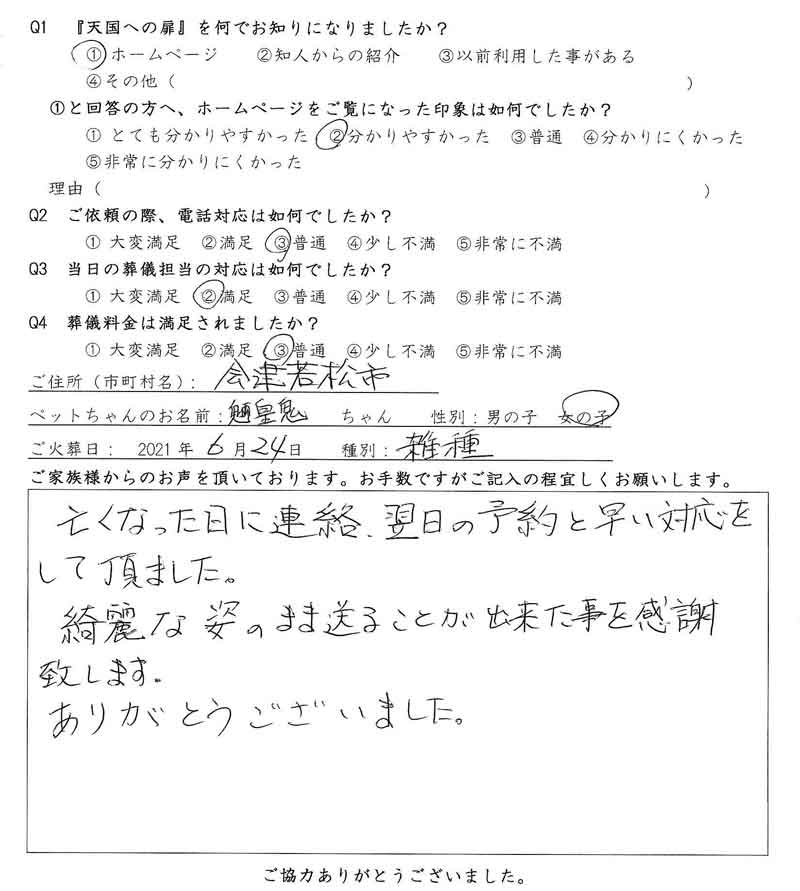 Q1 『天国への扉』を何でお知りになりましたか？
① ホームページ ②知人からの紹介 ③以前利用した事がある
④その他（ ）
①と回答の方へ、ホームページをご覧になった印象は如何でしたか？
① とても分かりやすかった ②分かりやすかった ③普通 ④分かりにくかった
⑤非常に分かりにくかった
理由（ ）
Q2 ご依頼の際、電話対応は如何でしたか？
① 大変満足 ②満足 ③普通 ④少し不満 ⑤非常に不満
Q3 当日の葬儀担当の対応は如何でしたか？
① 大変満足 ②満足 ③普通 ④少し不満 ⑤非常に不満
Q4 葬儀料金は満足されましたか？
① 大変満足 ②満足 ③普通 ④少し不満 ⑤非常に不満
ご住所（市町村名）： 会津若松市
ペットちゃんのお名前： ちゃん 性別：男の子 女の子
ご火葬日： 2021 年 6 月 24 日 種別： 雑種
ご家族様からのお声を頂いております。お手数ですがご記入の程宜しくお願いします。
亡くなった日に連絡、翌日の予約と早い対応を
して頂ました。
綺麗な姿のまま送ることが出来た事を感謝
致します。
ありがとうございました。
ご協力ありがとうございました。